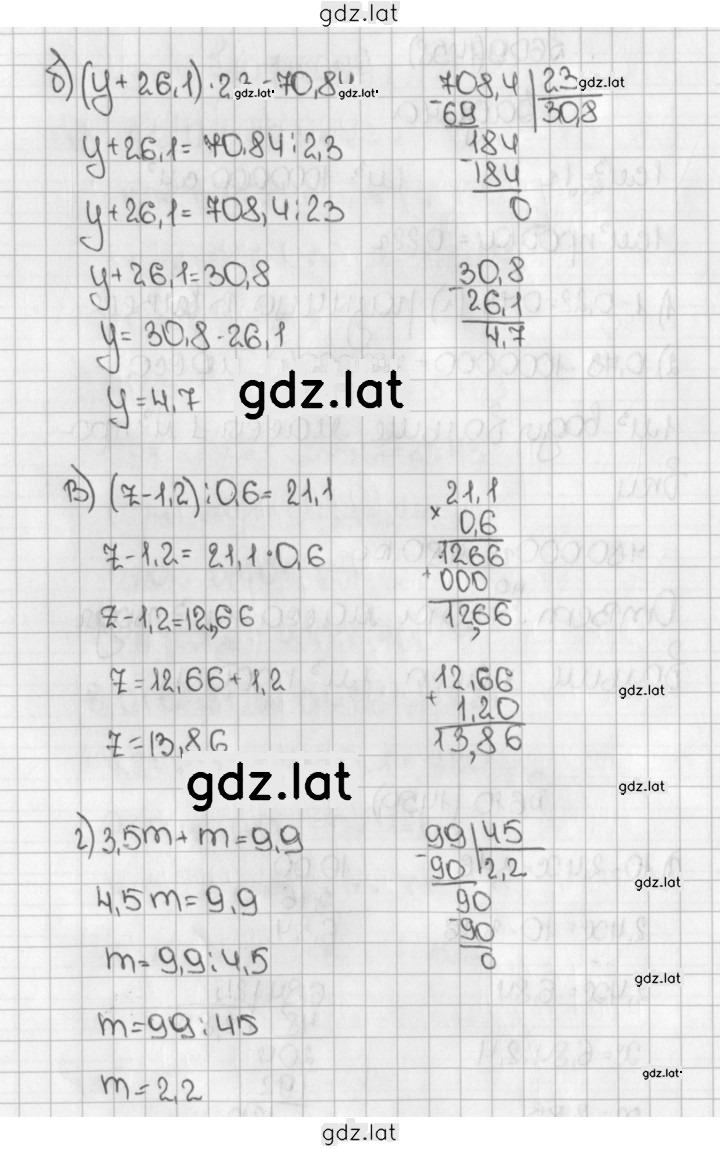 gdz.lat
б) (y + 26,1) · 2,3 = 70,84
gdz.lat· gdz.lat·
y + 26,1 = 70,84 : 2,3
y + 26,1 = 708,4 : 23
y + 26,1 = 30,8
y = 30,8 - 26,1
y = 4,7
708,4 | 23
gdz.lat
- 69 | 30,8
184
- 184
0
30,8
- 26,1
4,7
gdz.lat
в) (z - 1,2) : 0,6 = 21,1
z - 1,2 = 21,1 · 0,6
z - 1,2 = 12,66
z = 12,66 + 1,2
z = 13,86
21,1
× 0,6
1266
+ 000
12,66
12,66
+ 1,20
13,86
gdz.lat
gdz.lat
gdz.lat
г) 3,5m + m = 9,9
4,5m = 9,9
m = 9,9 : 4,5
m = 99 : 45
m = 2,2
99 | 45
- 90 | 2,2
90
- 90
0
gdz.lat
gdz.lat
gdz.lat·
gdz.lat